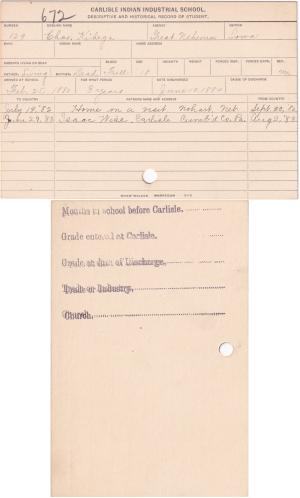 672
CARLISLE INDIAN INDUSTRIAL SCHOOL.
DESCRIPTIVE AND HISTORICAL RECORD OF STUDENT.
NUMBER ENGLISH NAME AGENCY NATION
129 Chas. Kihega Great Nehema Iowa
BAND INDIAN NAME HOME ADDRESS
PARENTS LIVING OR DEAD BLOOD AGE HEIGHT WEIGHT FORCED INSP. FORCED EXPR. SEX
FATHER Living MOTHER Dead Full 18 M
ARRIVED AT SCHOOL FOR WHAT PERIOD DATE DISCHARGED CAUSE OF DISCHARGE
3 years
TO COUNTRY PATRONS NAME AND ADDRESS FROM COUNTRY
July 19, '82 Home on a visit Nohart, Neb. Sept. 20, 82
June 29, '83 Isaac Wike, Carlisle Co. Pa. Aug 2, '83
Months in school before Carlisle.
Grade entered at Carlisle.
Grade at date of Discharge.
Trade or Industry.
Church.